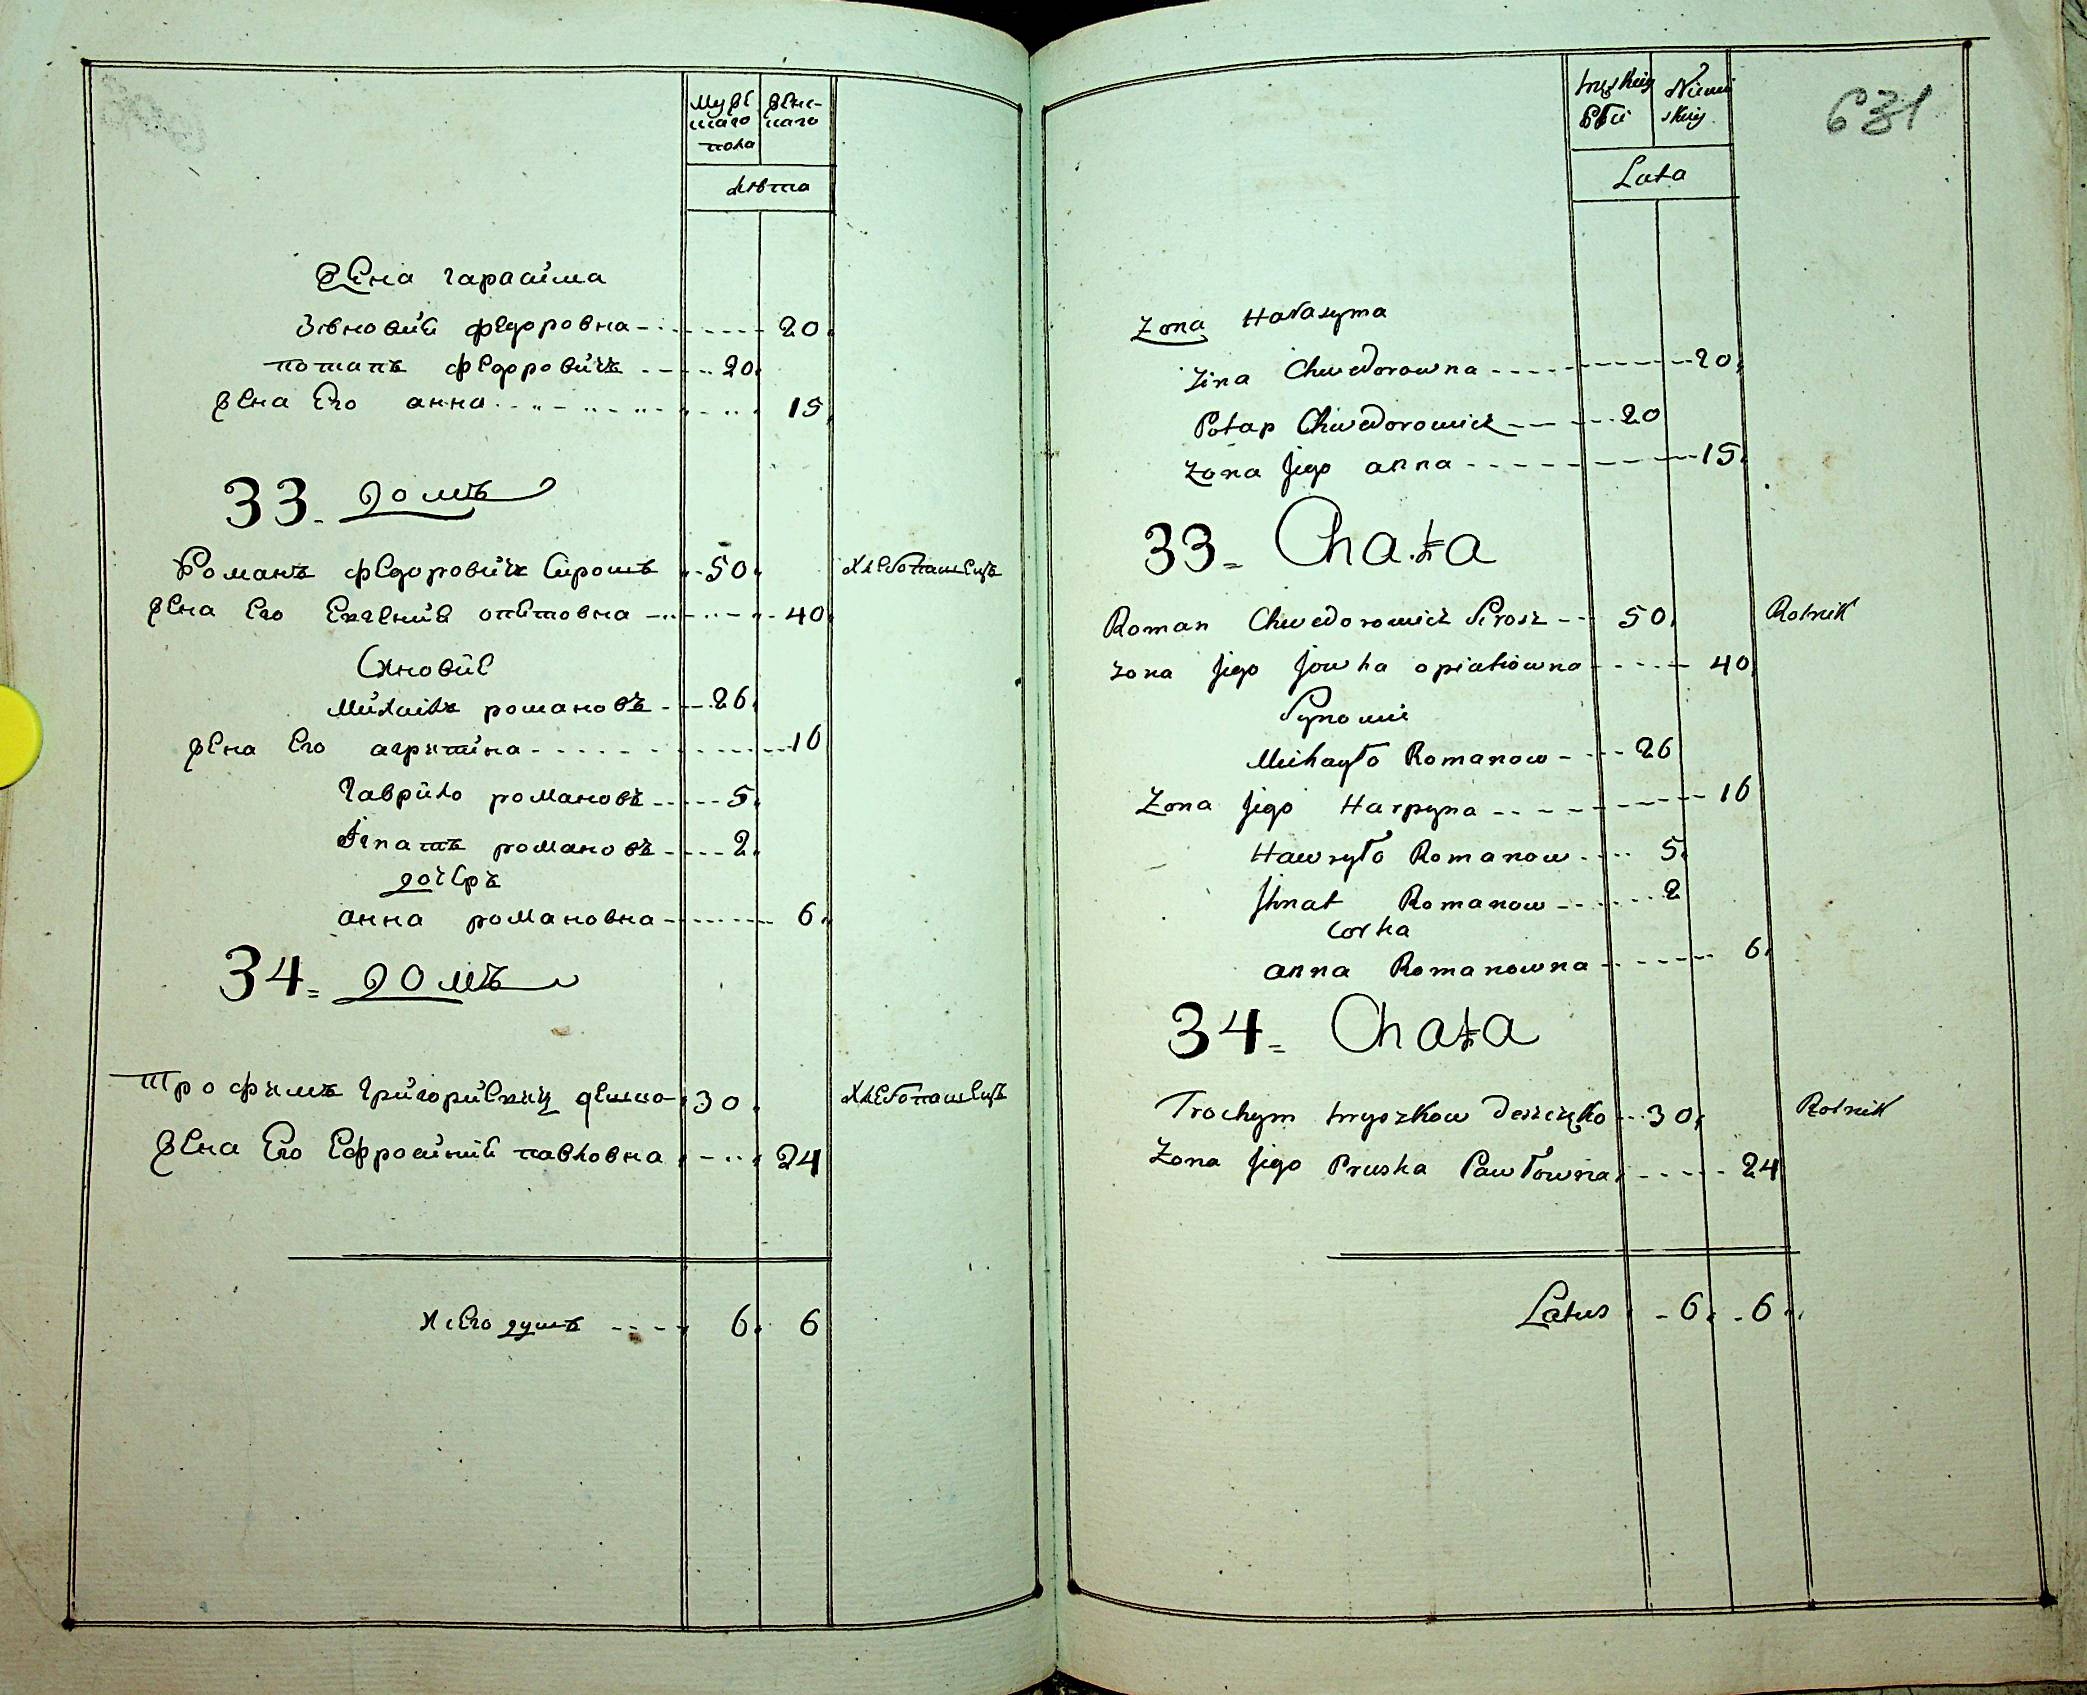 Мужескаго пола женскаго
Лѣта
Жена Гарасима
Зѣновия Федоровна 20
Потапъ Федоровичъ 20
Жена Его анна 15
33. Домъ
Романъ Федоровичъ Сирошъ 50 Хлебопашецъ
Жена Его Евгения опѣтовна 40
Сыновие
Михаилъ романовъ 26
Жена Его агрипина 16
Гаврило романовъ 5
Игнатъ романовъ 2
дочеръ
анна романовна 6
34. Домъ
Трофимъ Григориевичъ 30 Хлебопашецъ
Жена Его Ефросиния павловна 24
Всего душъ 6 6
631
Lata
Zona Harasyma
Zina Chwedorowna 20
Potap Chwedorowicz 20
Zona Jego anna 15
33. Chata
Roman Chwedorowicz Sirosz 50 Rolnik
Zona Jego Jowha opiatiowna 40
Synowie
Michayło Romanow 26
Zona Jego Harpyna 16
Hawryło Romanow 5
Jhnat Romanow 2
Corka
anna Romanowna 6
34. Chata
Trochym Hryszkow 30 Rolnik
Zona Jego Pruska Pawłowna 24
Latus 6 6